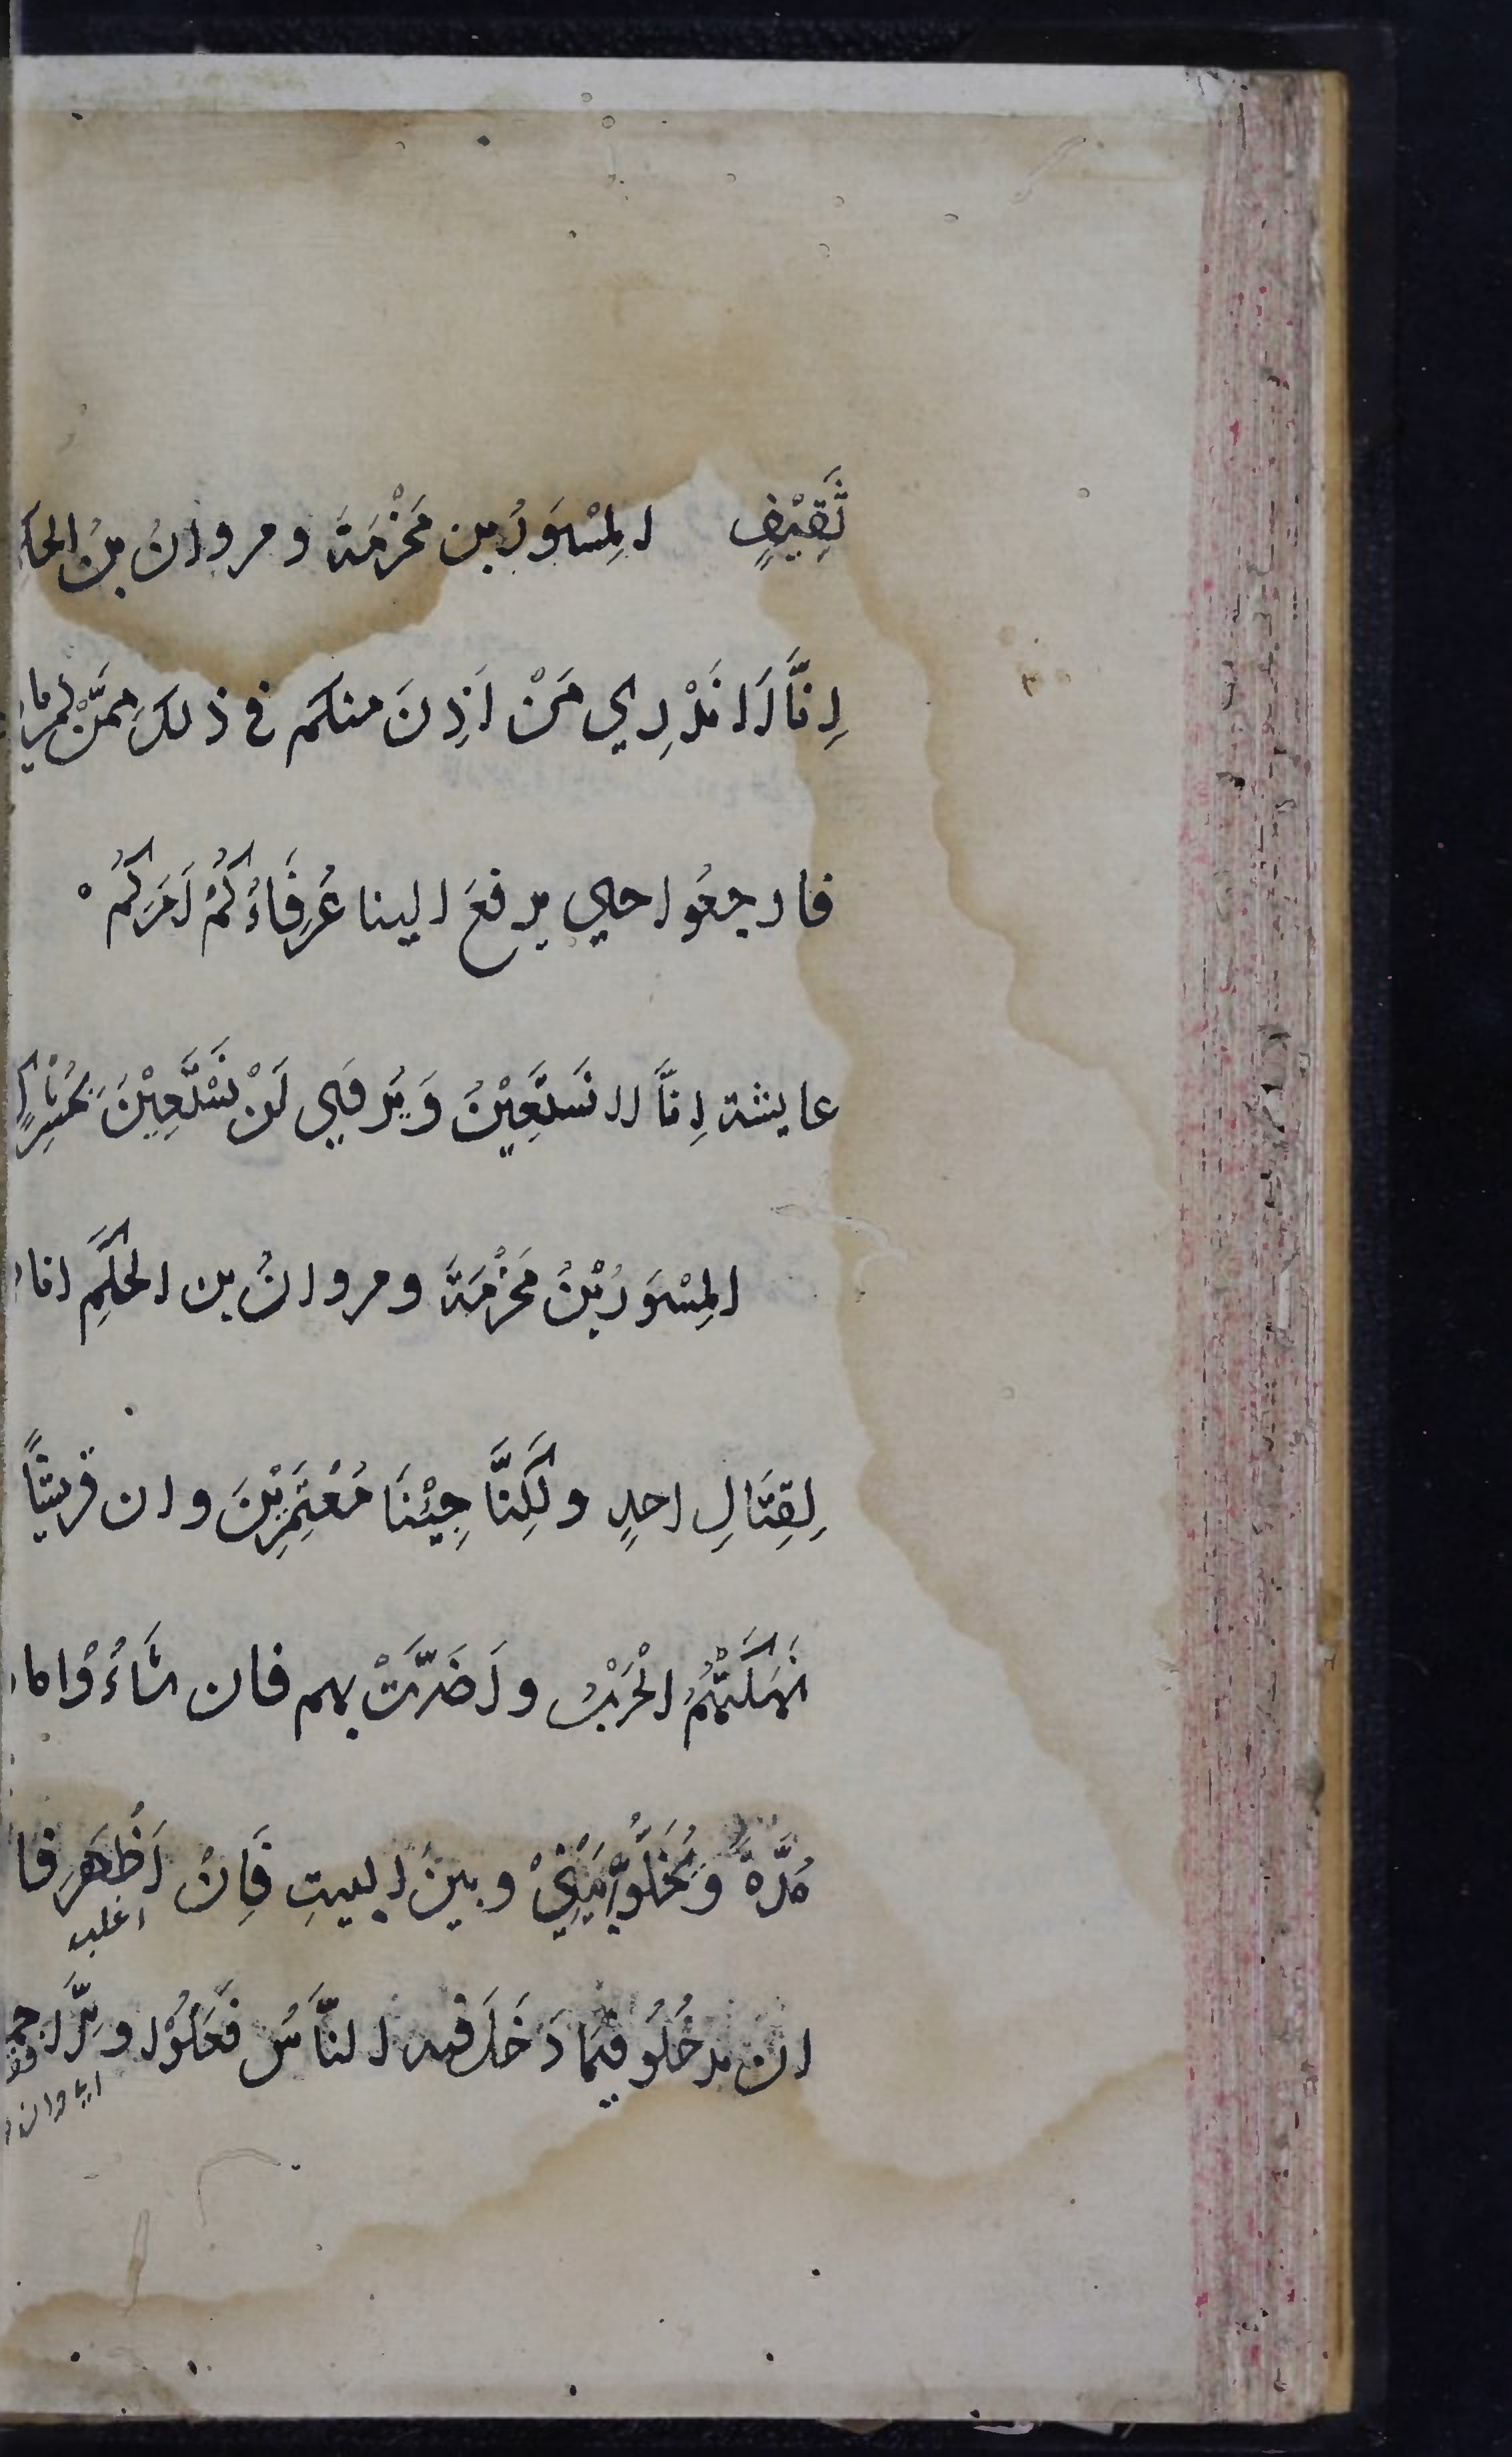 ثَقِيْفٍ المِسْوَرُ بن مَخْرَمَةَ ومروانُ بنُ الحكم
اِنَّا لَا نَدْرِي مَنْ اَذِنَ منكم في ذلك مِمَّنْ لم
فارجعُوا حتي يرفعَ الينا عُرَفَاءُكُمْ اَمْرَكُمْ
عايشة اِنَّا لا نَسْتَعِيْنُ وَيُرْوَي لَنْ نَسْتَعِيْنَ بِمُشْرِكٍ
المِسْوَرُ بْنُ مَخْرَمَةَ ومروانُ بن الحَكَمِ انا
لِقِتَالِ احدٍ ولٰكِنَّا جِئْنَا مُعْتَمِرِيْنَ وان قريشًا
نَهَكَتْهُمُ الْحَرْبُ واَضَرَّتْ بهم فان شَاءُوْا ما
مُدَّةً وَيُخَلُّوْا بَيْنِيْ وبينَ البيتِ فَاِنْ اَظْهَر فا
اغلب
ان يدخُلُو فيمَا دَخَلَ فيه النَّاسُ فَعَلُوْا و